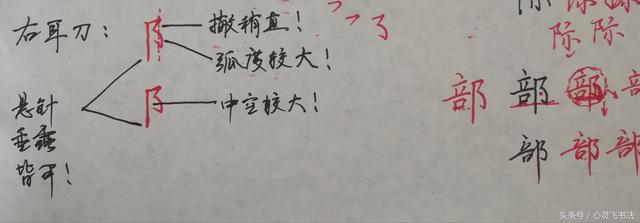 右耳刀：
阝
撇稍直！
弧度较大！
阝
中空较大！
悬针
垂露
皆可！
际 际 际
际 际
部 部 部 部
部 部 部
头条号 / 心灵飞书法